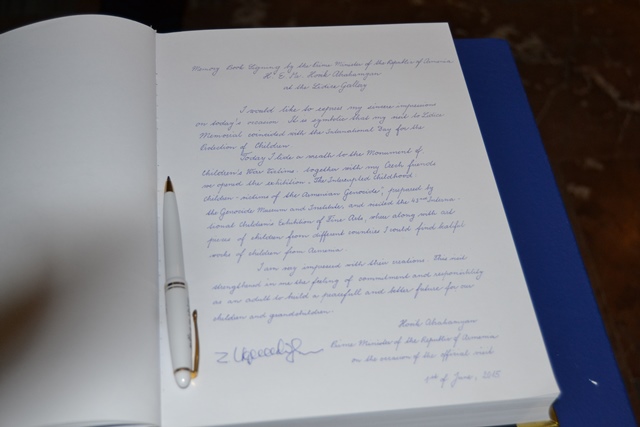 Memory Book Signing by the Prime Minister of the Republic of Armenia
H. E. Mr. Hovik Abrahamyan
at the Lidice Gallery
I would like to express my sincere impression
on today's occasion. It is symbolic that my visit to Lidice
Memorial coincided with the International Day for the
Protection of Children.
Today I laid a wreath to the Monument of
Children's War Victims, together with my Czech friends
we opened the exhibition "The Interrupted Childhood.
Children-victims of the Armenian Genocide", prepared by
the Genocide Museum and Institute, and visited the 43rd Interna-
tional Children's Exhibition of Fine Arts, where along with art
pieces of children from different countries I could find
works of children from Armenia.
I am very impressed with their creations. This visit
strengthened in me the feeling of commitment and responsibility
as an adult to build a peacefull and better future for our
children and grandchildren.
Hovik Abrahamyan
Prime Minister of the Republic of Armenia
on the occasion of the official visit
1st of June, 2015